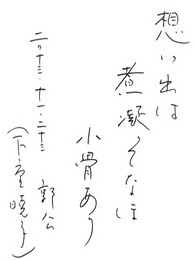 想い出は
煮凝りてなほ
小骨あり
二〇十三・十一・二十三
郭公
（下重暁子）